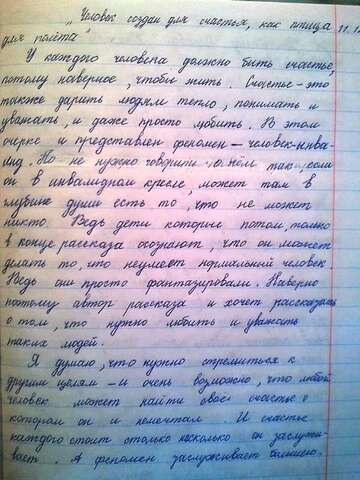 „Человек создан для счастья, как птица
для полёта"
11.1
У каждого человека должно быть счастье,
потому наверное, чтобы жить. Счастье – это
также дарить людям тепло, понимать и
уважать, и даже просто любить. В этом
очерке и представлен феномен – человек-инва-
лид. Но не нужно говорить о нём так, если
он в инвалидном кресле, может там в
глубине души есть то, что не может
никто. Ведь дети которые потом, только
в конце рассказа осознают, что он может
делать то, что неумеет нормальный человек.
Ведь они просто фантазировали. Наверно
поэтому автор рассказа и хочет рассказать
о том, что нужно любить и уважать
таких людей.
Я думаю, что нужно стремиться к
другим целям – и очень возможно, что любой
человек может найти своё счастье о
котором он и немечтал. И счастье
каждого стоит столько насколько он заслужи-
вает. А феномен заслуживает большего.